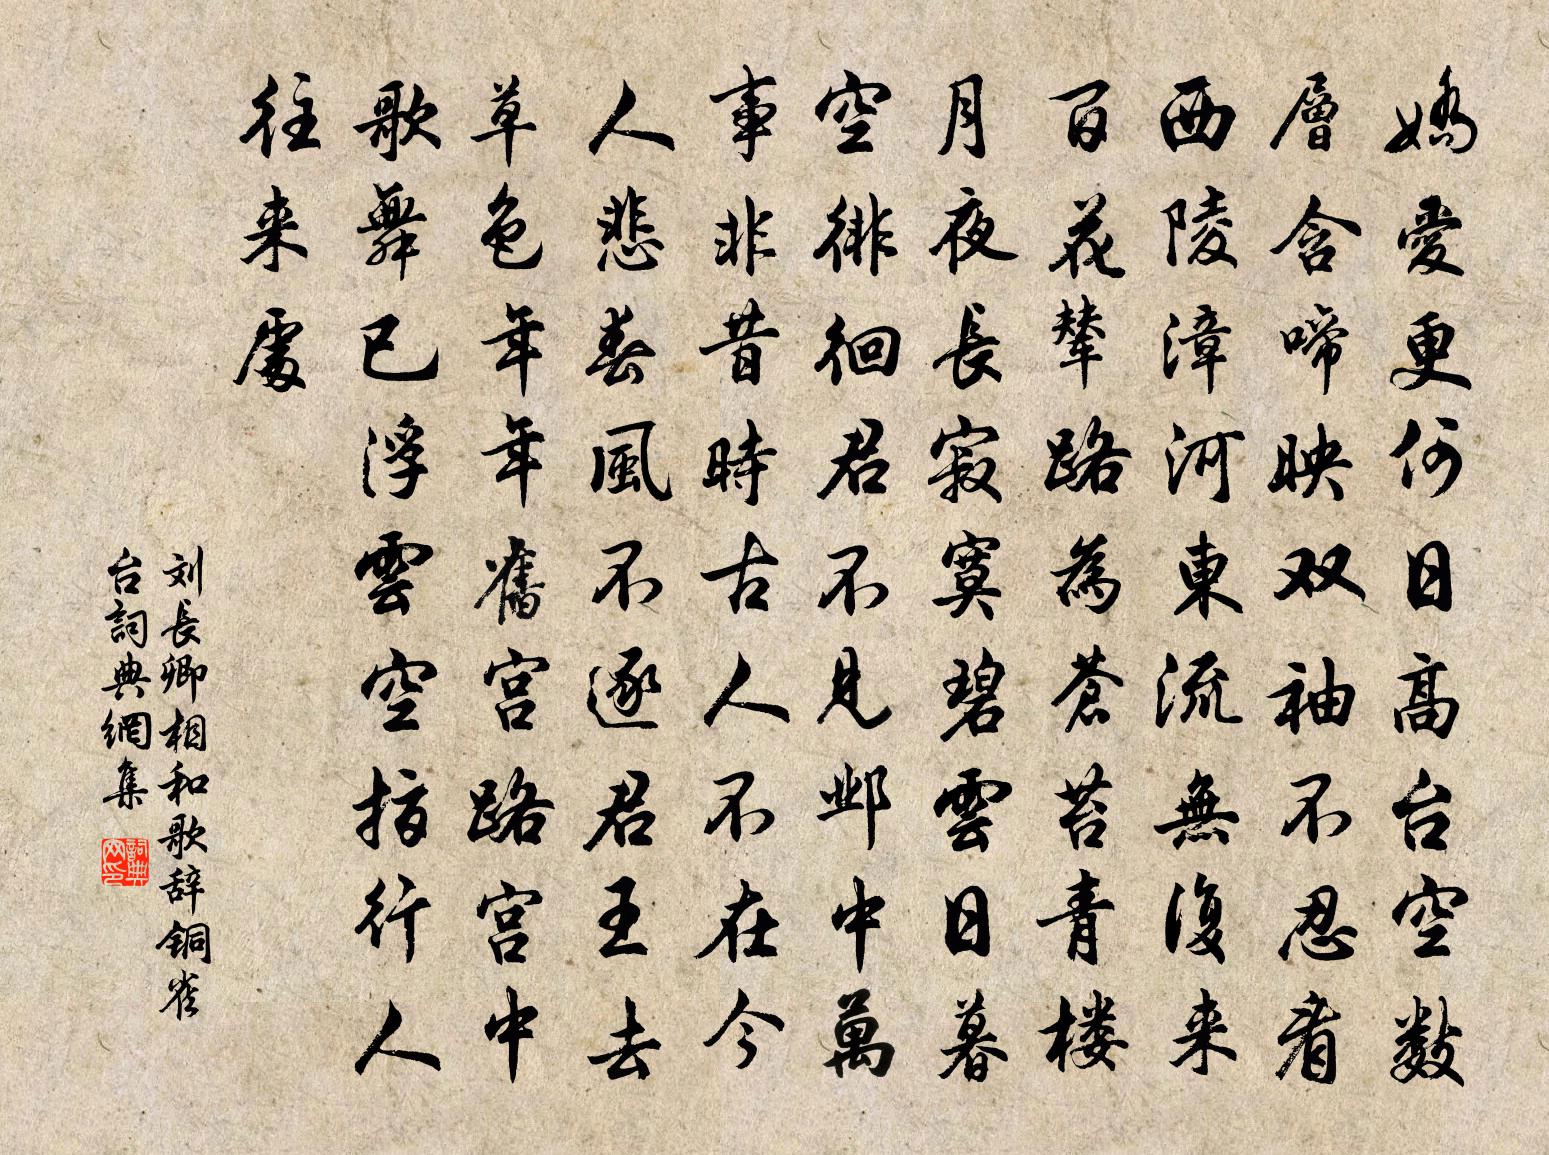 嬌愛更何日高台空数
層含啼映双袖不忍看
西陵漳河東流無復来
百花輦路為蒼苔青楼
月夜長寂寞碧雲日暮
空徘徊君不見邺中萬
事非昔時古人不在今
人悲春風不逐君王去
草色年年舊宮路宮中
歌舞已浮雲空指行人
往来處
刘長卿相和歌辞铜雀
台詞典網集
詞典网印